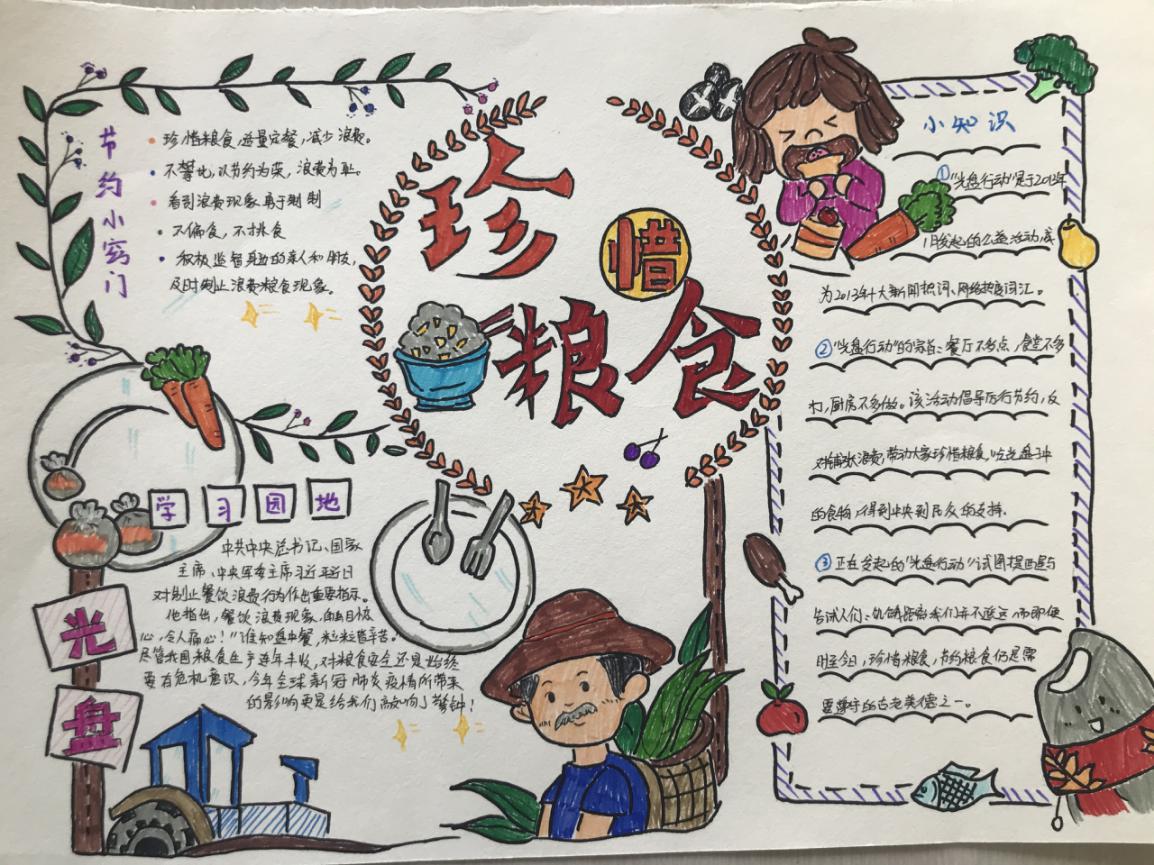 珍惜粮食
节约小窍门
珍惜粮食,适量定餐,减少浪费。
不攀比,以节约为荣,浪费为耻。
看到浪费现象勇于制制
不偏食,不挑食
积极监督身边的亲人和朋友,
及时制止浪费粮食现象。
学习园地
中共中央总书记、国家
主席、中央军委主席习近平近日
对制止餐饮浪费行为作出重要指示。
他指出,餐饮浪费现象,触目惊
心,令人痛心!"谁知盘中餐,粒粒皆辛苦。
尽管我国粮食生产连年丰收,对粮食安全还是始终
要有危机意识,今年全球新冠肺炎疫情所带来
的影响更是给我们敲响了警钟!
光
盘
小知识
①"光盘行动"是于2013年
1月发起的公益活动,成
为2013年十大新闻热词、网络热度词汇。
②"光盘行动"的宗旨:餐厅不多点,食堂不多
打,厨房不多做。该活动倡导厉行节约,反
对铺张浪费,带动大家珍惜粮食,吃光盘子中
的食物,得到中央到民众的支持.
③正在发起的"光盘行动"试图提醒与
告诫人们:饥饿距离我们并不遥远,而即便
时至今日,珍惜粮食,节约粮食仍是需
要遵守的古老美德之一。